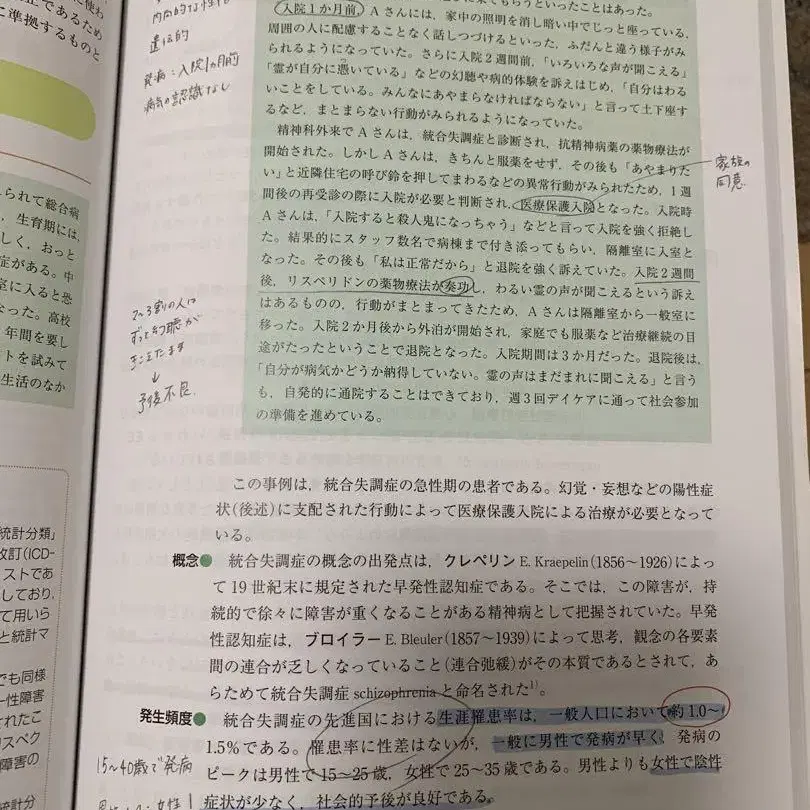 に使わ
正であるため
に準拠するものと
遺伝的
発病：入院1ヵ月前
病気の認識なし
来てもらうといったことはあった。
入院1か月前，Aさんには，家中の照明を消し暗い中でじっと座っている，
周囲の人に配慮することなく話しつづけるといった，ふだんと違う様子がみ
られるようになっていた。さらに入院2週間前，「いろいろな声が聞こえる」
「霊が自分に憑いている」などの幻聴や病的体験を訴えはじめ，「自分はわる
いことをしている。みんなにあやまらなければならない」と言って土下座す
るなど，まとまらない行動がみられるようになっていた。
精神科外来でAさんは，統合失調症と診断され，抗精神病薬の薬物療法が
開始された。しかしAさんは，きちんと服薬をせず，その後も「あやまりた
い」と近隣住宅の呼び鈴を押してまわるなどの異常行動がみられたため，1週
間後の再受診の際に入院が必要と判断され，医療保護入院となった。入院時
Aさんは，「入院すると殺人鬼になっちゃう」などと言って入院を強く拒絶し
た。結果的にスタッフ数名で病棟まで付き添ってもらい，隔離室に入室と
なった。その後も「私は正常だから」と退院を強く訴えていた。入院2週間
後，リスペリドンの薬物療法が奏功し，わるい霊の声が聞こえるという訴え
はあるものの，行動がまとまってきたため，Aさんは隔離室から一般室に
移った。入院2か月後から外泊が開始され，家庭でも服薬など治療継続の目
途がたったということで退院となった。入院期間は3か月だった。退院後は，
「自分が病気かどうか納得していない。霊の声はまだまれに聞こえる」と言う
も，自発的に通院することはできており，週3回デイケアに通って社会参加
の準備を進めている。
家族の
同意
2〜3割の人は
ずっと幻聴が
きこえたまま
↓
予後不良
られて総合病
，生育期には，
しく，おっと
症がある。中
室に入ると恐
なった。高校
年間を要し
トを試みて
生活のなか
この事例は，統合失調症の急性期の患者である。幻覚・妄想などの陽性症
状(後述)に支配された行動によって医療保護入院による治療が必要となって
いる。
概念● 統合失調症の概念の出発点は，クレペリン E. Kraepelin(1856〜1926)によっ
て19世紀末に規定された早発性認知症である。そこでは，この障害が，持
続的で徐々に障害が重くなることがある精神病として把握されていた。早発
性認知症は，ブロイラー E. Bleuler(1857〜1939)によって思考，観念の各要素
間の連合が乏しくなっていること(連合弛緩)がその本質であるとされて，あ
らためて統合失調症 schizophrenia と命名された1)。
発生頻度● 統合失調症の先進国における生涯罹患率は，一般人口において約1.0〜
1.5％である。罹患率に性差はないが，一般に男性で発病が早く，発病の
ピークは男性で15〜25歳，女性で25〜35歳である。男性よりも女性で陰性
症状が少なく，社会的予後が良好である。
15〜40歳で発病
統計分類」
改訂(ICD-
ストであ
しており，
て用いら
と統計マ
でも同様
一性障害
されたこ
のスペク
障害の
統計分